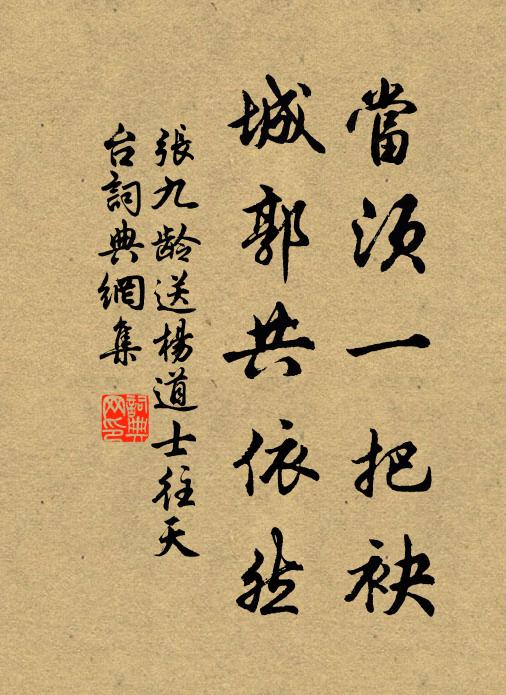 當須一把袂
城郭共依然
張九龄送楊道士往天
台詞典網集
詞典網印